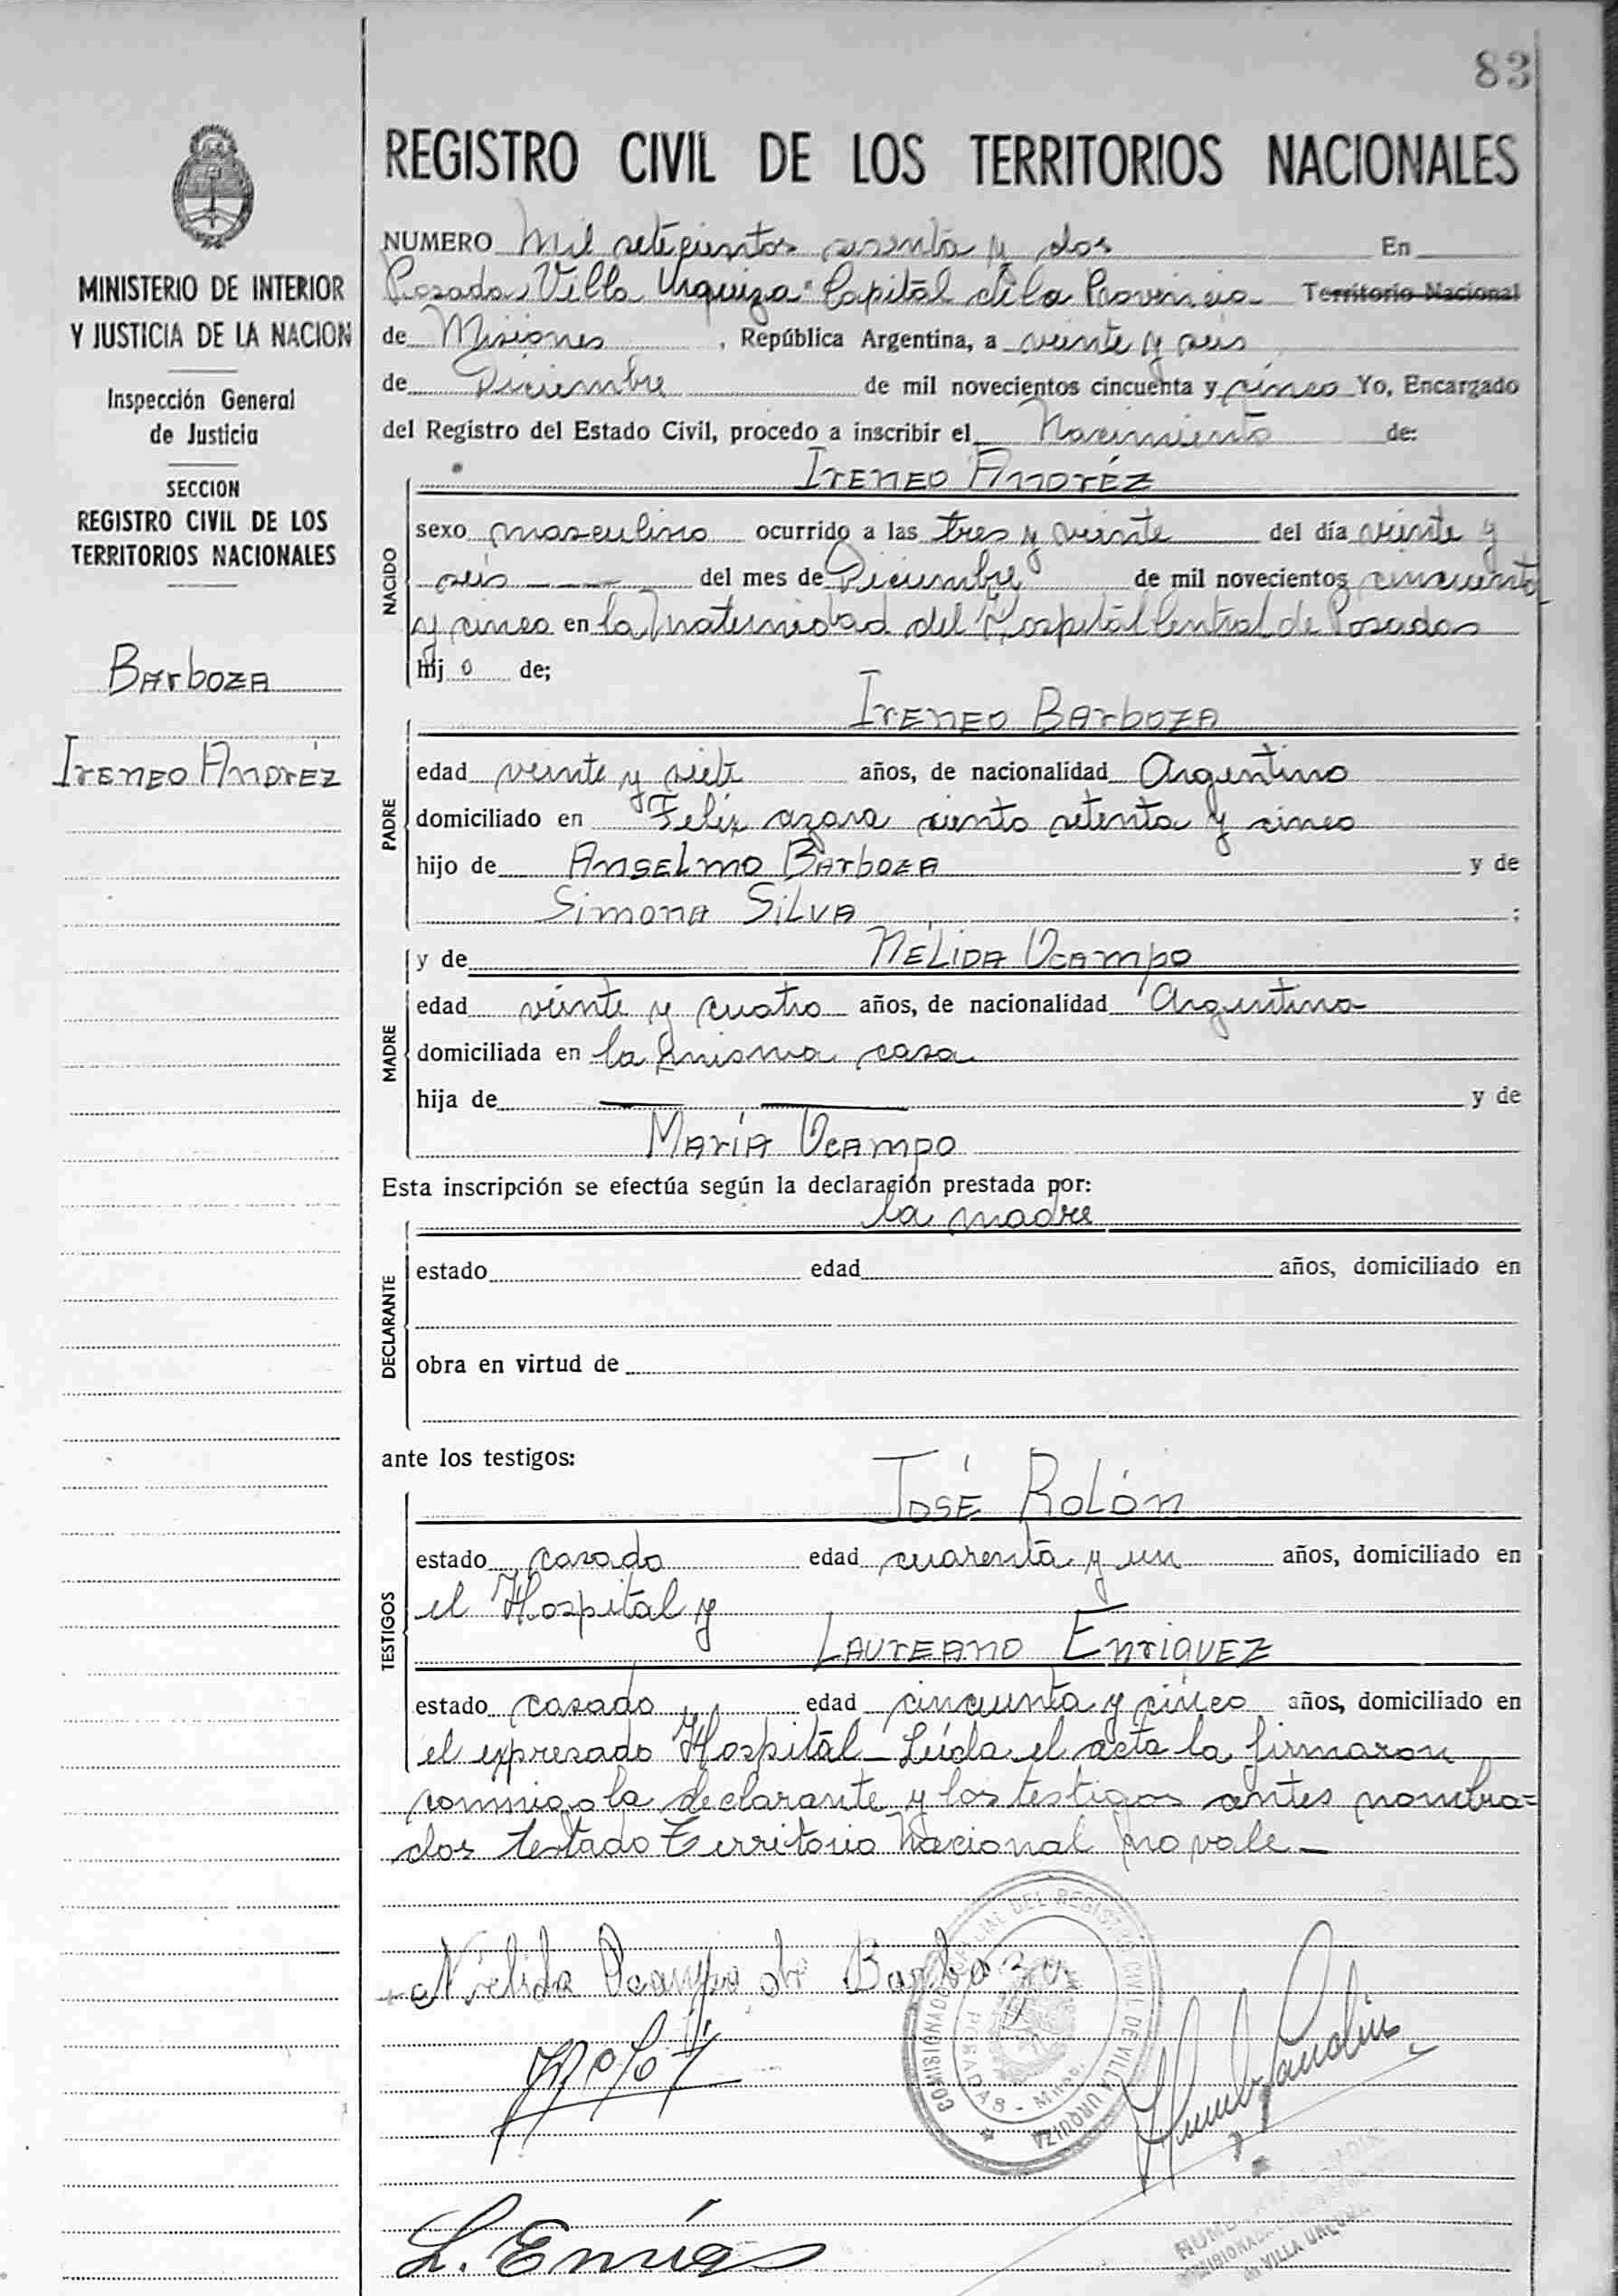 83
MINISTERIO DE INTERIOR
Y JUSTICIA DE LA NACION
Inspección General
de Justicia
SECCION
REGISTRO CIVIL DE LOS
TERRITORIOS NACIONALES
Barboza
Ireneo Andréz
REGISTRO CIVIL DE LOS TERRITORIOS NACIONALES
NUMERO Mil setecientos sesenta y dos En
Posadas Villa Urquiza Capital de la Provincia Territorio Nacional
de Misiones, República Argentina, a veinte y seis
de Diciembre de mil novecientos cincuenta y cinco Yo, Encargado
del Registro del Estado Civil, procedo a inscribir el Nacimiento de:
Ireneo Andréz
NACIDO
sexo masculino ocurrido a las tres y veinte del día veinte y
seis del mes de Diciembre de mil novecientos cincuenta
y cinco en la Maternidad del Hospital Central de Posadas
hijo de;
Ireneo Barboza
PADRE
edad veinte y siete años, de nacionalidad Argentino
domiciliado en Felix azara ciento setenta y cinco
hijo de Anselmo Barboza y de
Simona Silva ;
y de Nélida Ocampo
MADRE
edad veinte y cuatro años, de nacionalidad Argentina
domiciliada en la misma casa
hija de y de
María Ocampo
Esta inscripción se efectúa según la declaración prestada por:
la madre
DECLARANTE
estado edad años, domiciliado en
obra en virtud de
ante los testigos:
José Rolón
TESTIGOS
estado casado edad cuarenta y un años, domiciliado en
el Hospital y
Laureano Enriquez
estado casado edad cincuenta y cinco años, domiciliado en
el expresado Hospital - Leída el acta la firmaron
conmigo la declarante y los testigos antes nombra=
dos testado Territorio Nacional no vale -
Nélida Ocampo de Barboza
DEL REGISTRO CIVIL DE VILLA URQUIZA
POSADAS - Mnes.
L. Enrigs
VILLA URQUIZA